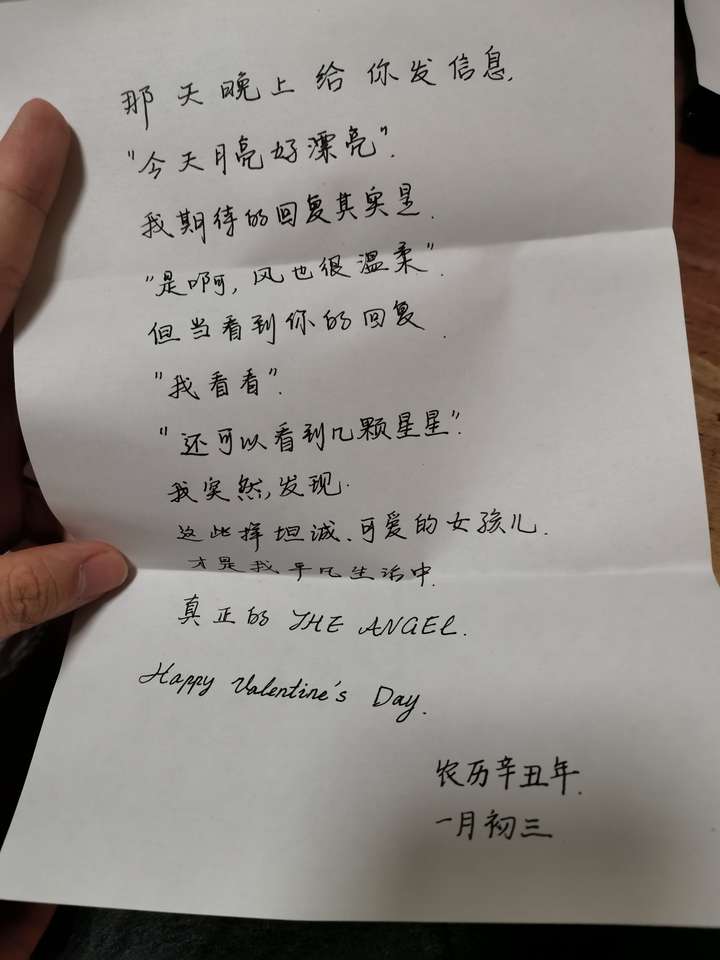 那天晚上给你发信息.
"今天月亮好漂亮".
我期待的回复其实是.
"是啊, 风也很温柔".
但当看到你的回复.
"我看看".
"还可以看到几颗星星".
我突然,发现.
这些择坦诚、可爱的女孩儿.
才是我平凡生活中.
真正的 THE ANGEL.
Happy Valentine's Day.
农历辛丑年.
一月初三